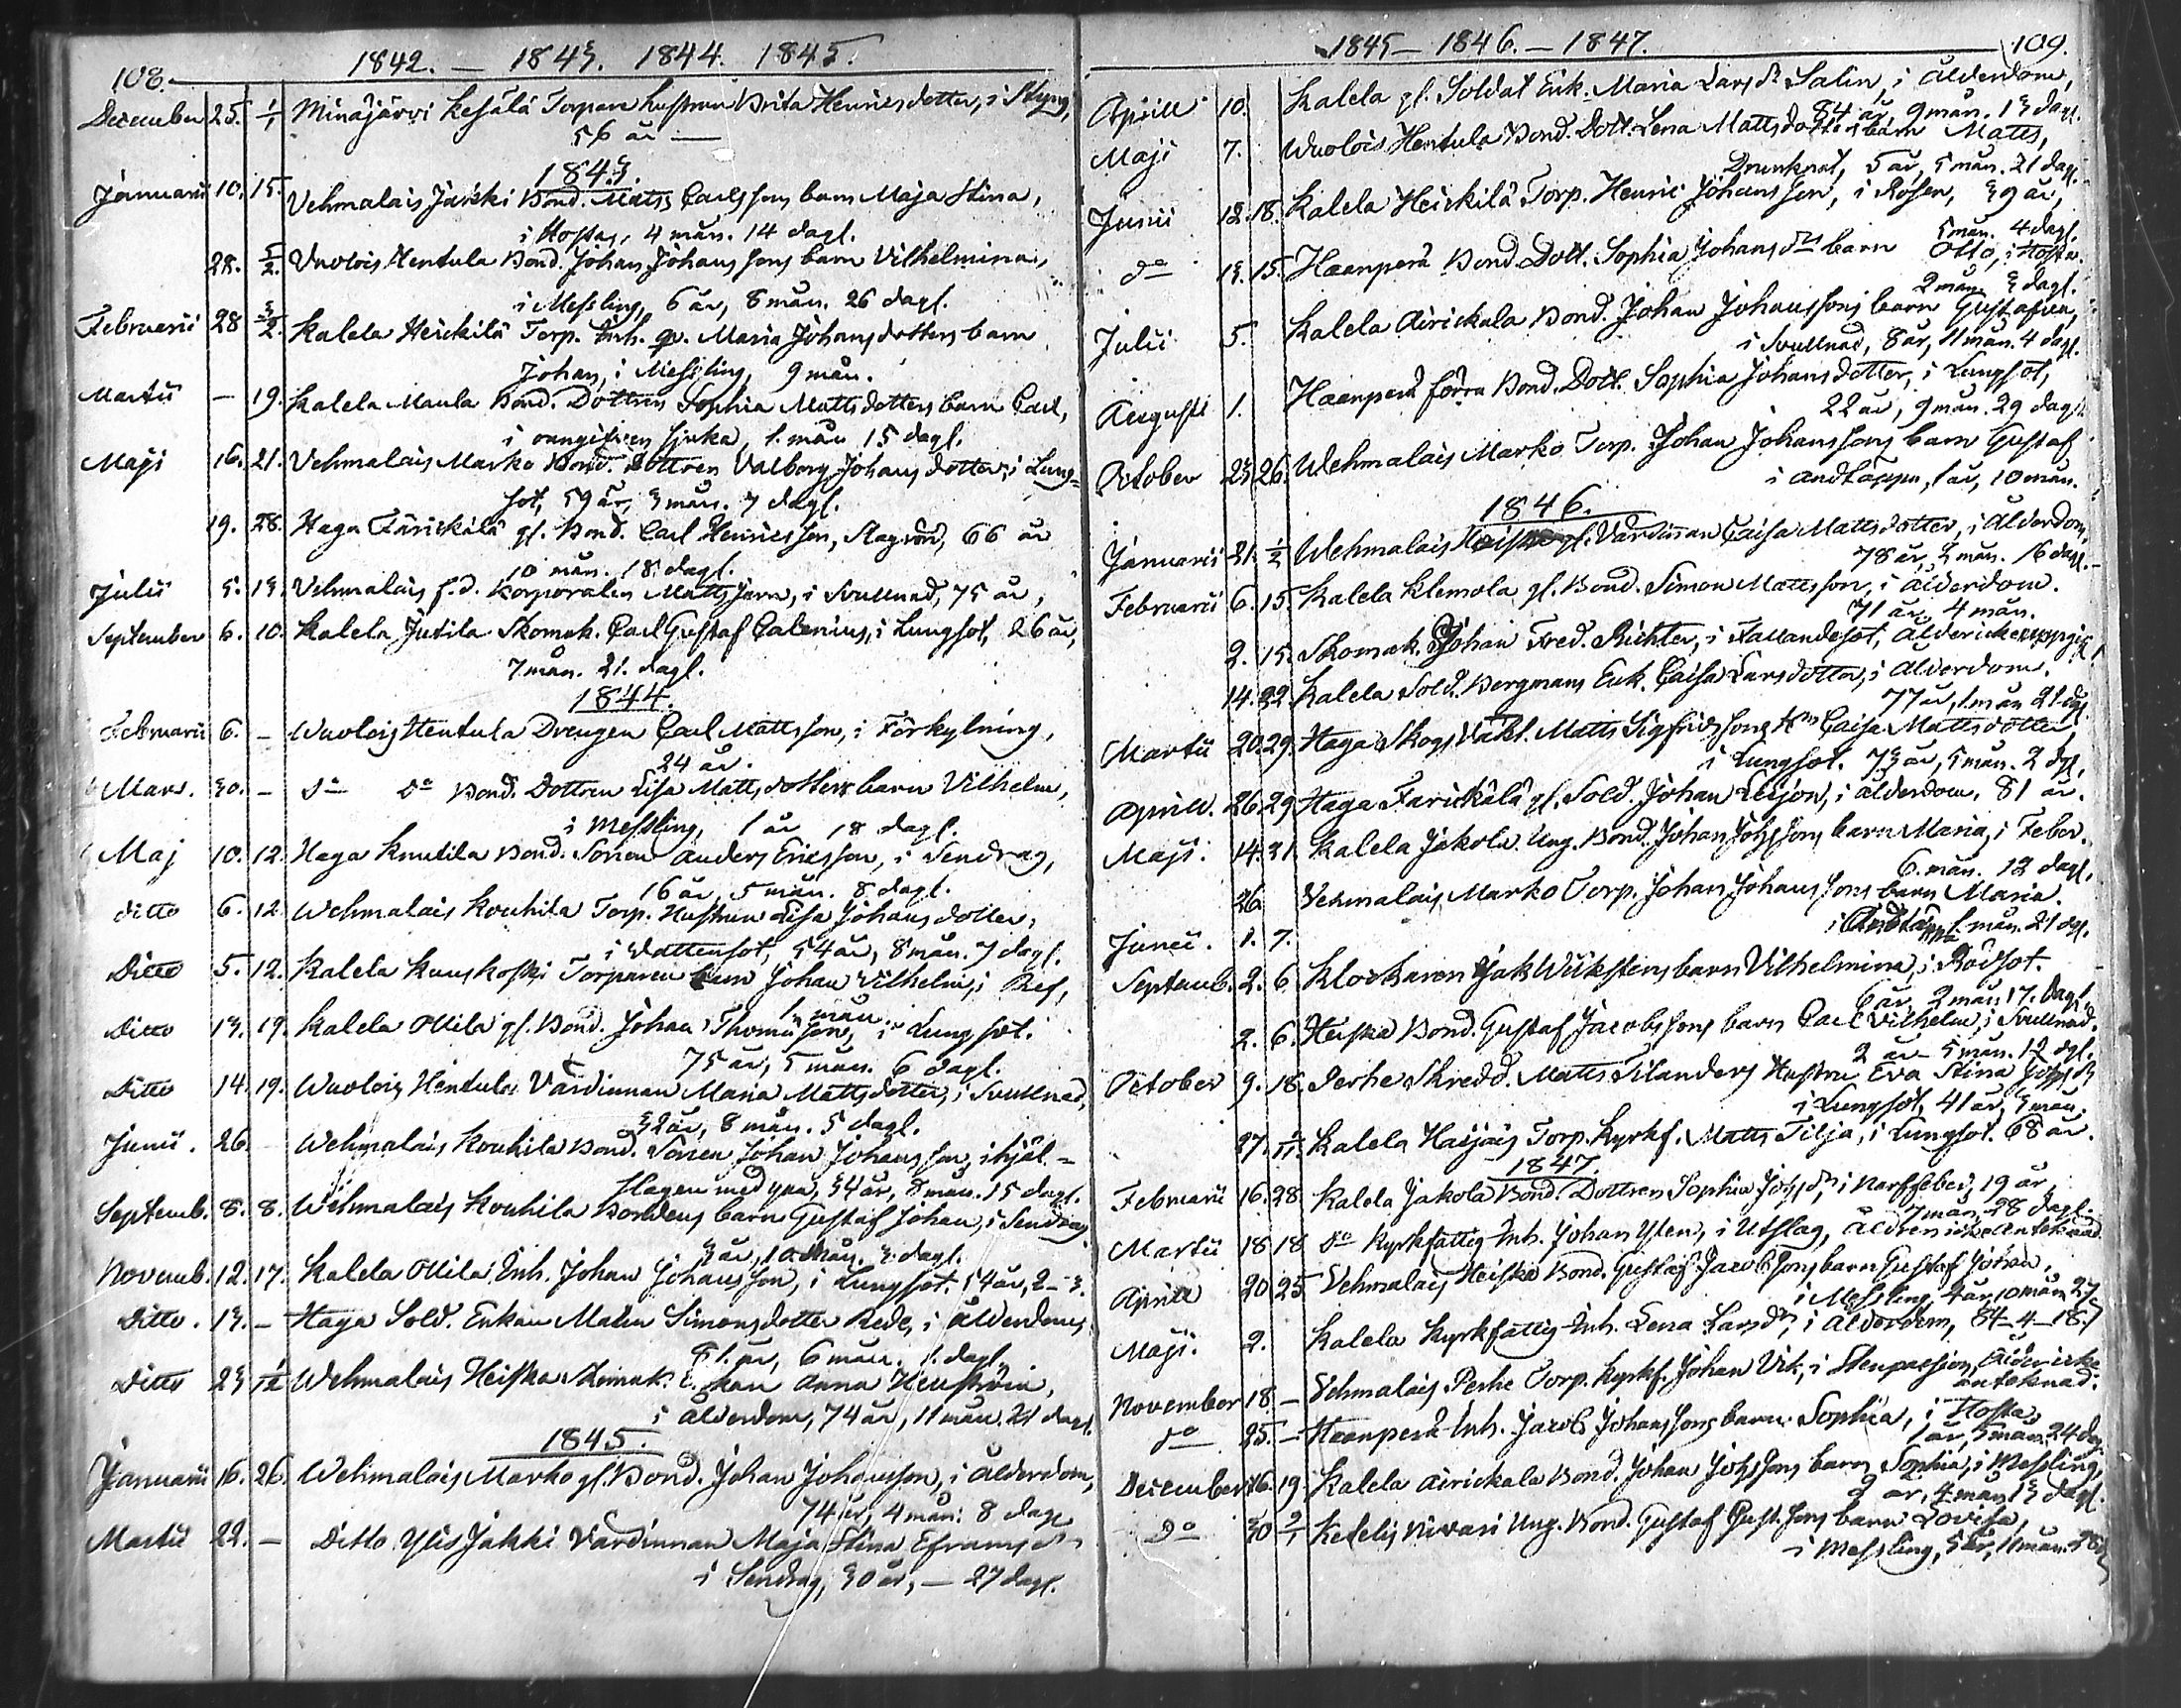 108. 1842. — 1843. 1844. 1845.
December 25. 1/1 Minäjärvi Kesälä Torpare hustrun Brita Henricsdotter, i Styng,
56 år —
1843.
Januarii 10. 15. Vehmalais Jaakki Bond. Matts Carlssons barn Maja Stina,
i Hosta, 4 mån. 14 dagl.
28. 5/2. Vuolois Hentula Bond. Johan Johanssons barn Vilhelmina,
i Messling, 6 år, 8 mån. 26 dagl.
Februarii 28 3/2. Kalela Heickilä Torp. Inh. qv. Maria Johansdotters barn
Johan, i Messling, 9 mån.
Martii — 19. Kalela Maula Bond. Dottren Sophia Mattsdotters barn Carl,
i oangifven sjuka, 1. mån 15 dagl.
Maji 16. 21. Vehmalais Marko Bond. Dottren Valborg Johansdotter, i Lung=
sot, 59 år, 3 mån. 7 dagl.
19. 28. Haga Färickilä gl. Bond. Carl Henricsson, Slagrörd, 66 år
10 mån. 18 dagl.
Julii 5. 13. Vehmalais f.d. Korporalen Matts Jern, i Svullnad, 75 år,
September 6. 10. Kalela Jutila Skomak. Carl Gustaf Calenius, i Lungsot, 26 år,
7 mån. 21. dagl.
1844.
Februarii 6. — Wuolois Hentula Drengen Carl Mattsson, i Förkylning,
24 år.
Mars. 30. — Do Do Bond. Dottren Lisa Mattsdotters barn Vilhelm,
i Messling, 1 år 18 dagl.
Maj 10. 12. Haga Knutila Bond. Sonen Anders Ericsson, i Sendrag,
16 år, 5 mån. 8 dagl.
ditto 6. 12. Wehmalais Kouhila Torp. Hustrun Lisa Johansdotter,
i Vattensot, 54 år, 8 mån. 7 dagl.
Ditto 5. 12. Kalela Kauskoski Torparen barn Johan Vilhelm, i Ref,
1 mån.
Ditto 13. 19. Kalela Ollila gl. Bond. Johan Thomasson, i Lungsot.
75 år, 5 mån. 6 dagl.
Ditto 14. 19. Wuolois Hentula Värdinnan Maria Mattsdotter, i Svullnad,
32 år, 8 mån. 5 dagl.
Junii. 26. Wehmalais Kouhila Bond. Sonen Johan Johansson, ihjäl=
slagen med yxa, 34 år, 8 mån. 15 dagl.
Septemb. 8. 8. Wehmalais Kouhila Bondens barn Gustaf Johan, i Sendrag
3 år, 10 mån. 3. dagl.
Novemb. 12. 17. Kalela Ollila Inh. Johan Johansson, i Lungsot. 54 år, 2 — 3.
Ditto. 13. — Haga Sold. Enkan Malin Simonsdotter Rede, i ålderdom,
81. år, 6 mån. 1. dagl.
Ditto 23 1/12 Wehmalais Heiska Skomak. E. kan Anna Hellström,
i ålderdom, 74 år, 11 mån. 21 dagl.
1845.
Januarii 16. 26. Wehmalais Marko gl. Bond. Johan Johansson, i ålderdom,
74 år, 4 mån: 8 dagl.
Martii 22. — Ditto Ylis Jakki Värdinnan Maja Stina Eframsdr
i Sendrag, 30 år, — 27 dagl.
1845 — 1846. — 1847. 109.
Aprill 10. Kalela gl. Soldat Enk. Maria Larsdr Salin, i Ålderdom,
84 år, 9 mån. 13 dagl.
Maji 7. Wuolois Hentula Bond. Dott. Lena Mattsdotters barn Matts,
Drunknat, 5 år, 5 mån. 21 dagl.
Junii 12. 18. Kalela Heickilä Torp. Henric Johansson, i Rosen, 39 år,
5 mån. 4 dagl.
do 13. 15. Haanperä Bond. Dott. Sophia Johansdrs barn Otto, i Hosta.
2 mån. 3 dagl.
Julii 5. Kalela Airickala Bond. Johan Johanssons barn Gustafva,
i Svullnad, 8 år, 11 mån. 4 dagl.
Augusti 1. Haanperä förra Bond. Dott. Sophia Johansdotter, i Lungsot,
22 år, 9 mån. 29 dagl.
October 23 26. Wehmalais Marko Torp. Johan Johanssons barn Gustaf
i andtäppa, 1 år, 10 mån.
1846.
Januarii 21. 1/2 Wehmalais Heiska gl. Värdinnan Caisa Mattsdotter, i Ålderdom,
78 år, 2 mån. 16 dagl.
Februarii 6. 15. Kalela Klemola gl. Bond. Simon Mattsson, i ålderdom.
71 år, 4 mån.
2. 15. Skomak. Johan Fred. Richter, i Fallandesot, Ålder icke uppgif.
14. 22. Kalela Sold. Bergmans Enk. Caisa Larsdotter, i Ålderdom.
77 år, 1. mån 21 dgl.
Martii 20. 29. Haga Skogs Vakt. Matts Sigfridssons Hn Caisa Mattsdotter,
i Lungsot. 73 år, 5 mån. 2 dgl.
Aprill. 26. 29 Haga Farickälä gl. Sold. Johan Leijon, i ålderdom, 81 år.
Maji. 14. 31 Kalela Jakola Ung. Bond. Johan Johssons barn Maria, i Feber.
6. mån. 12 dagl.
26 Vehmalais Marko Torp. Johan Johanssons barn Maria.
i Andtäppa 1. mån. 21 dgl.
Junii. 1. 7.
Septemb. 2. 6 Klockaren Jak Wikstens barn Vilhelmina, i Rödsot.
6 år, 2 mån 17. dagl.
2. 6. Heiska Bond. Gustaf Jacobssons barn Carl Vilhelm, i Svullnad.
2 år — 5 mån. 12 dgl.
October 9. 18. Perhe Skredd. Matts Tilanders Hustru Eva Stina Johsdr
i Lungsot, 41 år, 3 mån.
27. 1/11. Kalela Haijais Torp. Kyrkf. Matts Tilja, i Lungsot. 68 år.
1847.
Februarii 16. 28 Kalela Jakola Bond. Dottren Sophia Johsdr, i Narffeber, 19 år,
7 mån. 28 dagl.
Martii 18 18 Do Kyrkfattig Inh. Johan Ylen, i Utslag, Åldren icke antecknad.
Aprill 20 25 Vehmalais Heiska Bond. Gustaf Jacobssons barn Gustaf Johan,
i Messling, 4 år, 10 mån 27
Maji. 2. Kalela Kyrkfattig Inh. Lena Larsdr, i Ålderdom, 84 — 4 — 18.
November 18. — Vehmalais Perhe Torp. Kyrkf. Johan Vik, i Stenpassion, Ålder icke
antecknad.
do 25. — Haanperä Inh. Jacob Johanssons barn Sophia, i Hosta,
1 år, 3 mån. 24 dag.
December 16. 19. Kalela Airickala Bond. Johan Johssons barn Sophia, i Messling,
2 år, 4 mån 13 dagl.
Do 30 2/1 Ketelis Nivari Ung. Bond. Gustaf Gustssons barn Lovisa,
i Messling, 5 år, 11 mån. 28